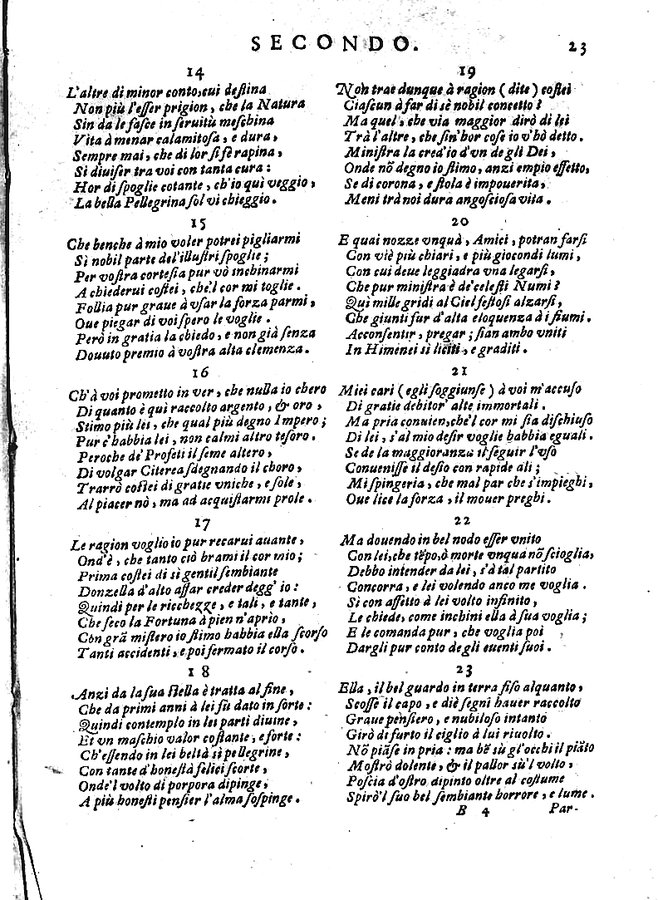 SECONDO. 23
14
L'altre di minor conto, cui destina
Non più l'esser prigion, che la Natura
Sin da le fasce in seruitù meschina
Vita à menar calamitosa, e dura,
Sempre mai, che di lor si fè rapina,
Si diuiser tra voi con tanta cura:
Hor di spoglie cotante, ch'io qui veggio,
La bella Pellegrina sol vi chieggio.
15
Che benche à mio voler potrei pigliarmi
Sì nobil parte de l'illustri spoglie;
Per vostra cortesia pur vò inchinarmi
A chiederui costei, che'l cor mi toglie.
Follia pur graue à vsar la forza parmi,
Oue piegar di voi spero le voglie.
Però in gratia la chiedo, e non già senza
Douuto premio à vostra alta clemenza.
16
Ch'à voi prometto in ver, che nulla io chero
Di quanto è qui raccolto argento, & oro,
Stimo più lei, che qual più degno Impero;
Pur è habbia lei, non calmi altro tesoro.
Peroche de' Profeti il seme altero,
Di volgar Citerea sdegnando il choro,
Trarrò costei di gratie vniche, e sole,
Al piacer nò, ma ad acquistarmi prole.
17
Le ragion voglio io pur recarui auante,
Ond'è, che tanto ciò brami il cor mio;
Prima costei di sì gentil sembiante
Donzella d'alto affar creder degg' io:
Quindi per le ricchezze, e tali, e tante,
Che seco la Fortuna à pien n'aprio,
Con grã mistero io stimo habbia ella scorso
Tanti accidenti, e poi fermato il corso.
18
Anzi da la sua stella è tratta al fine,
Che da primi anni à lei fù dato in sorte:
Quindi contemplo in lei parti diuine,
Et vn maschio valor costante, e forte:
Ch'essendo in lei beltà sì pellegrine,
Con tante d'honestà felici scorte,
Onde'l volto di porpora dipinge,
A più honesti pensier l'alma sospinge.
19
Non trae dunque à ragion (dite) costei
Ciascun à far di sè nobil concetto?
Ma quel, che via maggior dirò di lei
Trà l'altre, che sin'hor cose io v'hò detto.
Ministra la cred'io d'vn de gli Dei,
Onde nõ degno io stimo, anzi empio effetto,
Se di corona, e stola è impouerita,
Meni trà noi dura angosciosa vita.
20
E quai nozze vnquà, Amici, potran farsi
Con viè più chiari, e più giocondi lumi,
Con cui deue leggiadra vna legarsi,
Che pur ministra è de' celesti Numi?
Qui mille gridi al Ciel festosi alzarsi,
Che giunti fur d'alta eloquenza à i fiumi.
Acconsentir, pregar; sian ambo vniti
In Himenei sì liciti, e graditi.
21
Miei cari (egli soggiunse) à voi m'accuso
Di gratie debitor' alte immortali.
Ma pria conuien, che'l cor mi sia dischiuso
Di lei, s'al mio desir voglie habbia eguali.
Se de la maggioranza il seguir l'vso
Conuenisse il desio con rapide ali;
Mi spingeria, che mal par che s'impieghi,
Oue lice la forza, il mouer preghi.
22
Ma douendo in bel nodo esser vnito
Con lei, che tẽpo, ò morte vnqua nõ scioglia,
Debbo intender da lei, s'à tal partito
Concorra, e lei volendo anco me voglia.
Sì con affetto à lei volto infinito,
Le chiede, come inchini ella à sua voglia;
E le comanda pur, che voglia poi
Dargli pur conto de gli euenti suoi.
23
Ella, il bel guardo in terra fiso alquanto,
Scosse il capo, e diè segni hauer raccolto
Graue pensiero, e nubiloso intanto
Girò di furto il ciglio à lui riuolto.
Nõ piãse in pria: ma bẽ sù gl'occhi il piãto
Mostrò dolente, & il pallor sù'l volto,
Poscia d'ostro dipinto oltre al costume
Spirò'l suo bel sembiante horrore, e lume.
B 4 Par-